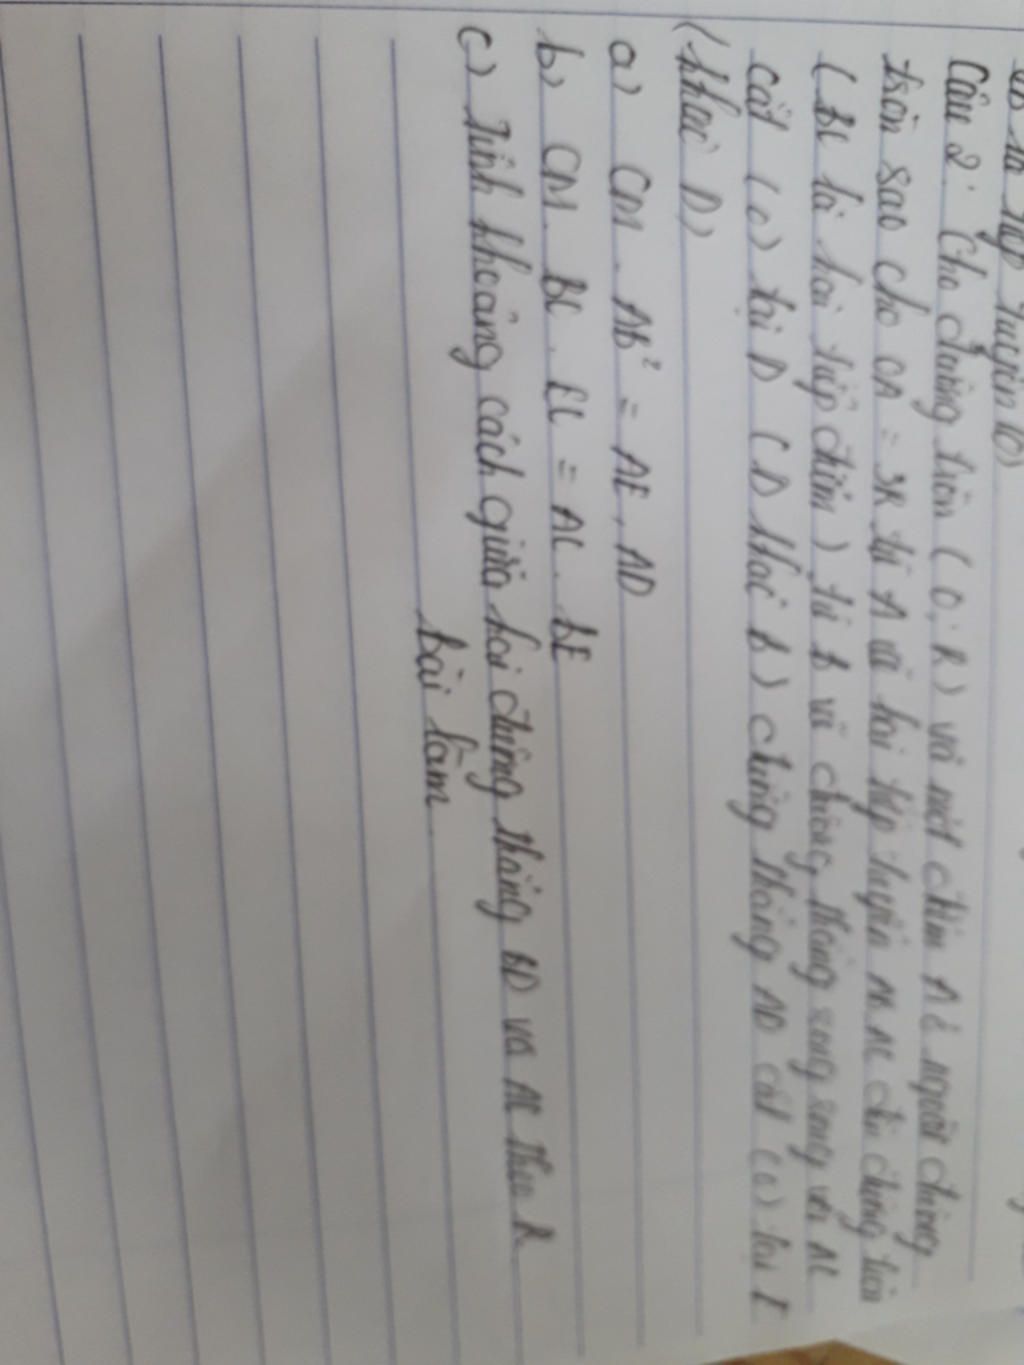 là tiếp tuyến (O)
Câu 2: Cho đường tròn (O; R) và một điểm A ở ngoài đường
tròn sao cho OA = 3R từ A vẽ hai tiếp tuyến AB, AC đến đường tròn
(B,C là hai tiếp điểm) từ B vẽ đường thẳng song song với AC
cắt (O) tại D (D khác B) đường thẳng AD cắt (O) tại E
(khác D)
a) CM. AB² = AE. AD
b) CM. BC. EC = AC. BE
c) Tính khoảng cách giữa hai đường thẳng BD và AC theo R
Bài làm